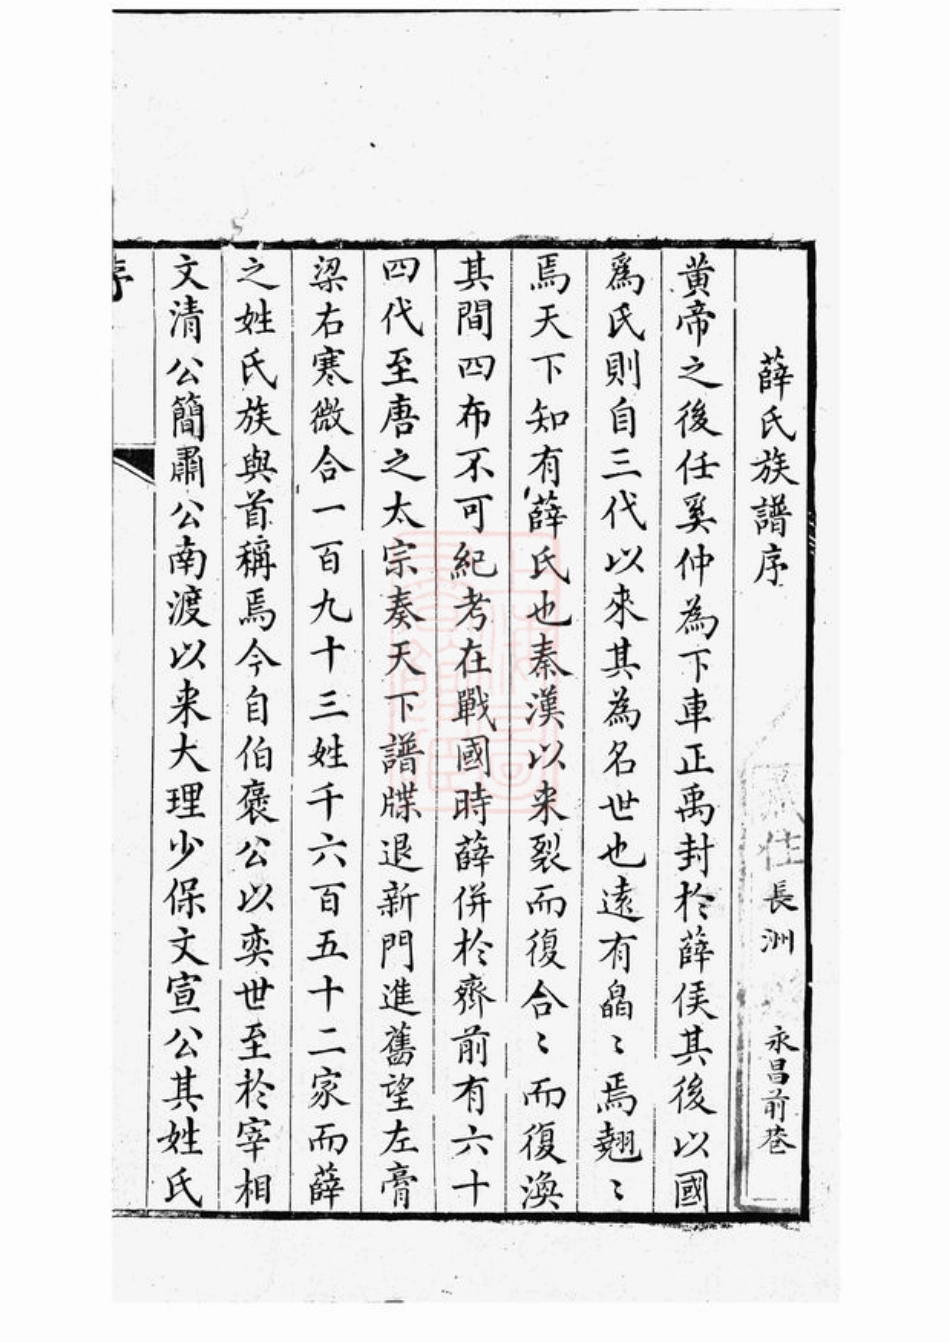 薛氏族譜序 長洲 永昌前巷
黃帝之後任奚仲為下車正禹封於薛侯其後以國
爲氏則自三代以來其為名世也遠有皛〻焉翹〻
焉天下知有薛氏也秦漢以来裂而復合〻而復渙
其間四布不可紀考在戰國時薛併於齊前有六十
四代至唐之太宗奏天下譜牒退新門進舊望左膏
梁右寒微合一百九十三姓千六百五十二家而薛
之姓氏族與首稱焉今自伯褒公以奕世至於宰相
文清公簡肅公南渡以来大理少保文宣公其姓氏
序